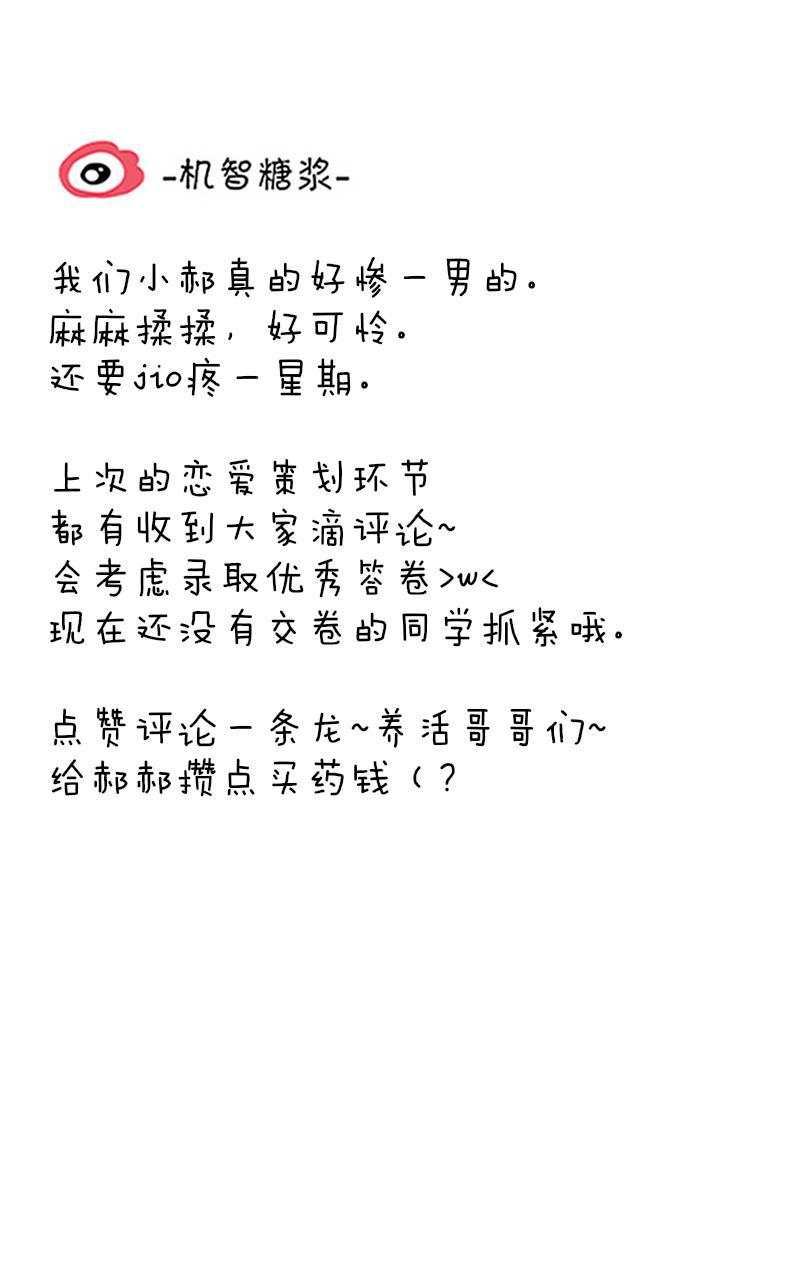 -机智糖浆-
我们小郝真的好惨一男的。
麻麻揉揉,好可怜。
还要jio疼一星期。
上次的恋爱策划环节
都有收到大家滴评论~
会考虑录取优秀答卷>w<
现在还没有交卷的同学抓紧哦。
点赞评论一条龙~养活哥哥们~
给郝郝攒点买药钱（?